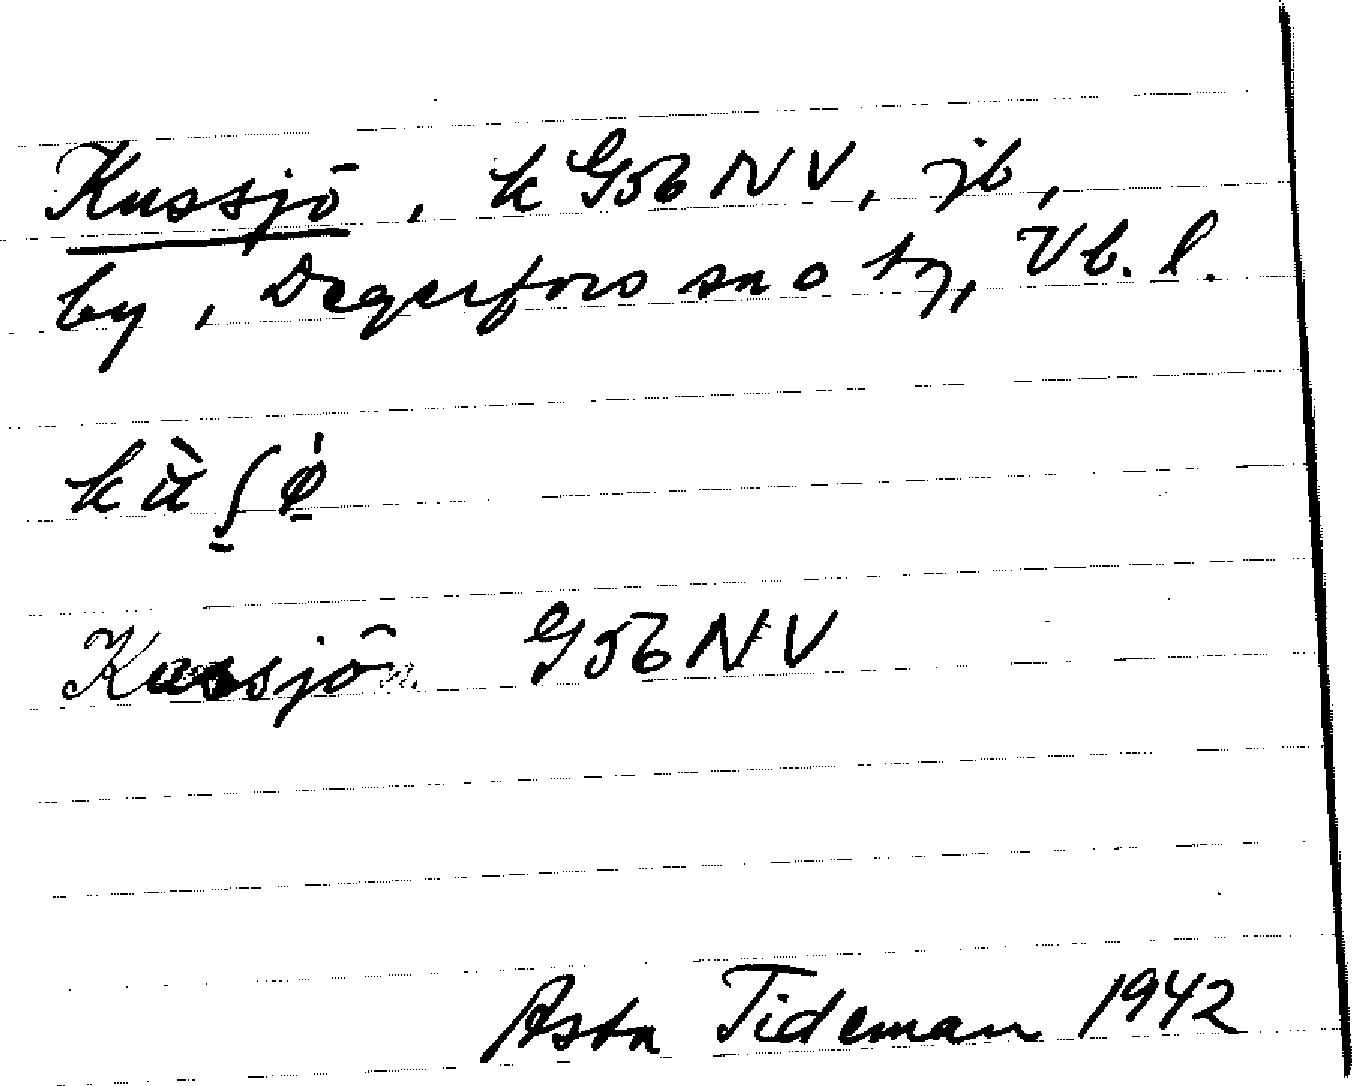 Kussjö, k G56 NV, jb,
by, Degerfors sn o tg, Vb. l.
kù̈ʃø̀
Kussjön G56 NV
Asta Tideman 1942